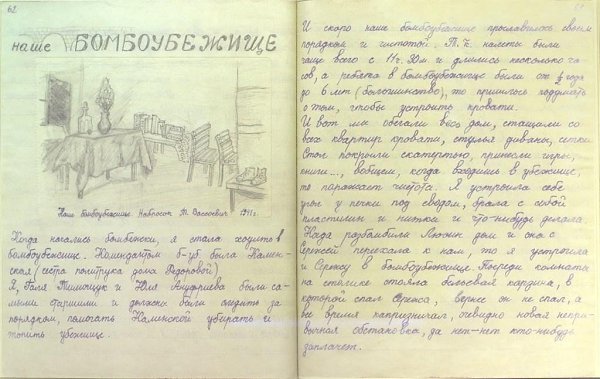 62
наше БОМБОУБЕЖИЩЕ
Наше бомбоубежище. Набросок М. Васкевич 1941г.
Когда начались бомбёжки, я стала ходить в
бомбоубежище. Комендантом б-уб. была Камен-
ская (сестра политрука дома Федоровой)
Я, Галя Тимощук и Ния Ануфриева были са-
мыми старшими и должны были следить за
порядком, помогать Каменской убирать и
топить убежище.
И скоро наше бомбоубежище прославилось своим
порядком и чистотой. Т.к. налеты были
чаще всего с 11ч. 30м и длились несколько ча-
сов, а ребята в бомбоубежище были от ½ года
до 6 лет (большинство), то пришлось подумать
о том, чтобы устроить кровати.
И вот мы обегали весь дом, стащили со
всех квартир кровати, стулья диваны, сетки
Стол покрыли скатертью, принесли игры,
книги..., вобщем, когда входишь в убежище,
то поражает чистота. Я устроила себе
угол у печки под сводом, брала с собой
пластилин и нитки и что-нибудь делала.
Когда разбомбили Люсин дом и она с
Сережей переехала к нам, то я устроила
и Сережу в бомбоубежище. Посреди комнаты
на столике стояла бельевая корзина, в
которой спал Сережа, вернее он не спал, а
все время капризничал, очевидно новая непри-
вычная обстановка, да нет-нет кто-нибудь
заплачет.